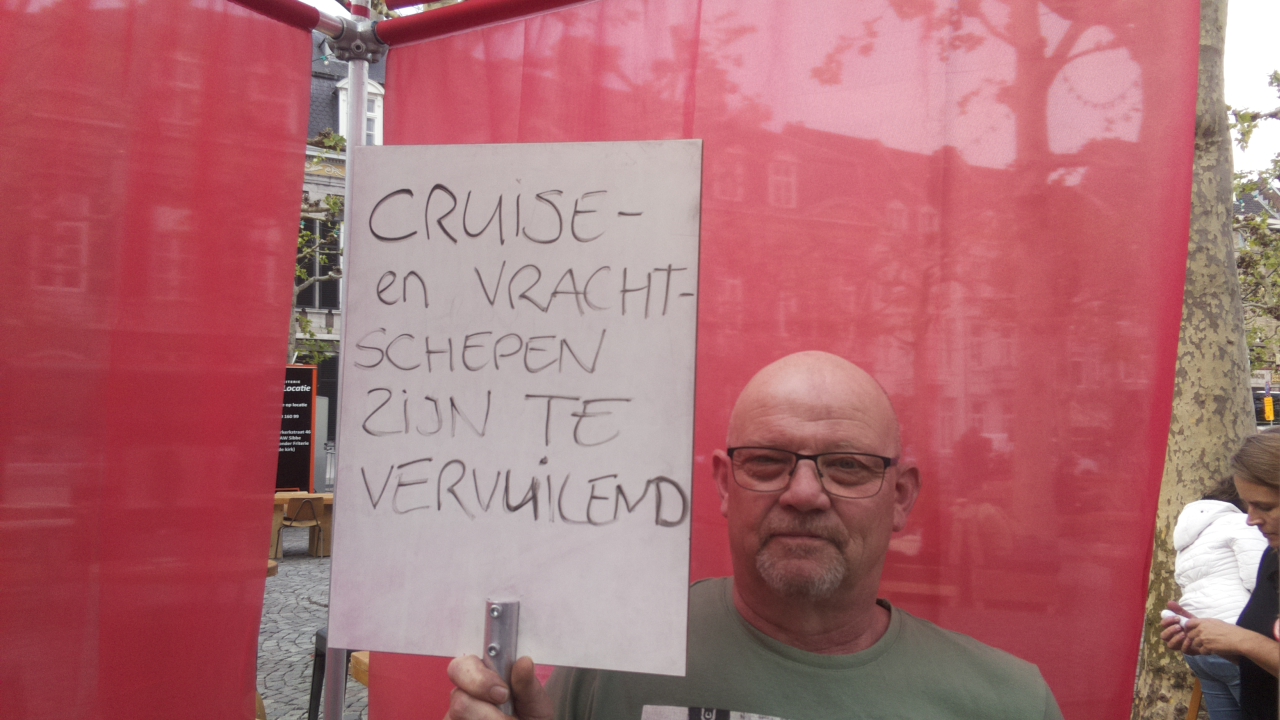 CRUISE-
en VRACHT-
SCHEPEN
ZIJN TE
VERVUILEND
Locatie
op locatie